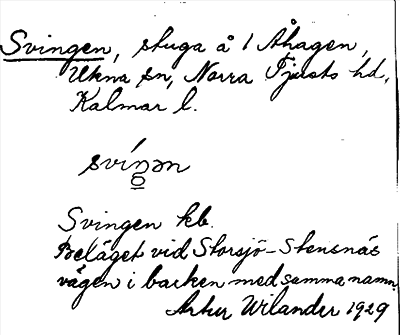 Svingen, stuga å 1 Åhagen,
Ukna sn, Norra Tjusts hd,
Kalmar l.
svíŋən
Svingen kb.
Beläget vid Storsjö-Stensnäs
vägen i backen med samma namn.
Artur Wilander 1929